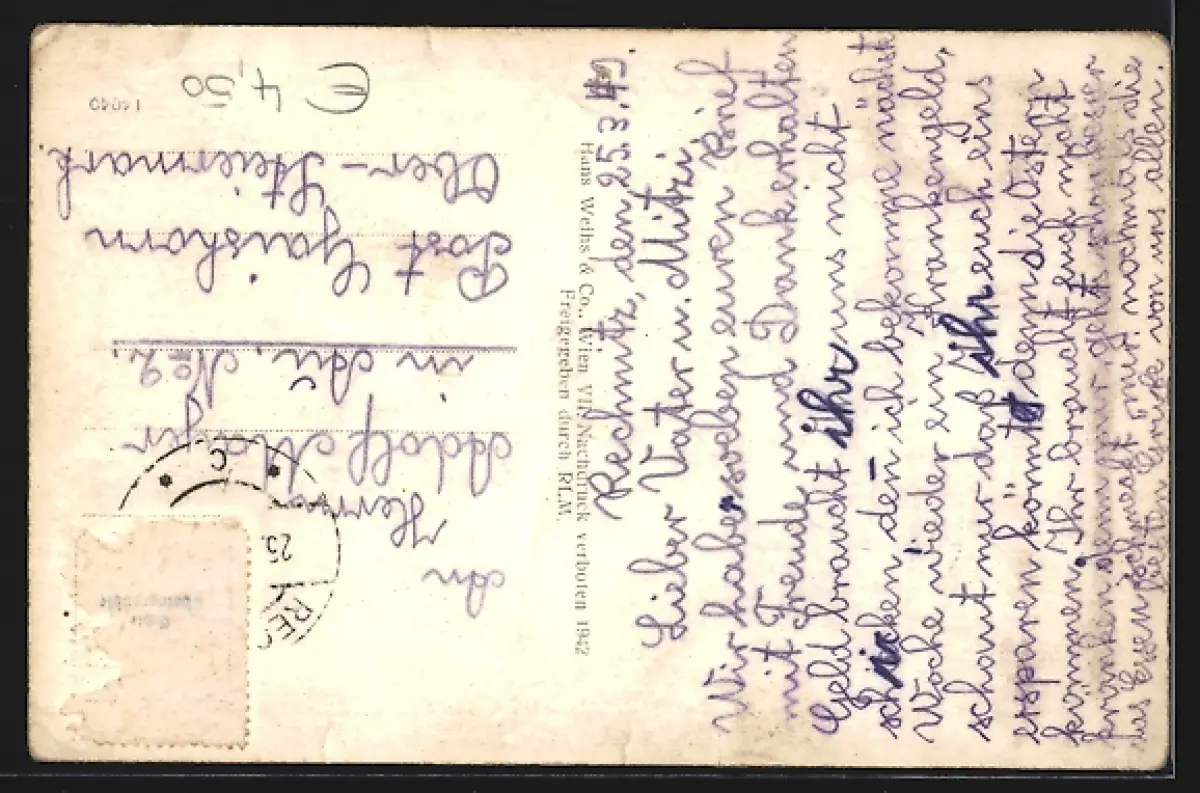 Rechnitz, den 25.3.49.
Lieber Vater u. Mitzi.
Wir haben soeben euren Brief
mit Freude und Dank erhalten
Geld braucht ihr uns nicht
schicken den ich bekomme nächste
Woche wieder ein Krankengeld,
schaut nur daß ihr euch eins
ersparen könnt denn die Ostern
kommen. Ihr braucht euch nicht
kränken denn mir geht's schon besser
das Essen schmeckt mir nochmals die
besten Grüße von uns allen.
Hans Weihs & Co., Wien VII. Nachdruck verboten 1942
Freigegeben durch RLM.
An
Herrn
Adolf
in Au, No 2.
Post Gaishorn
Ober-Steiermark.
REC
25.
€ 4,50